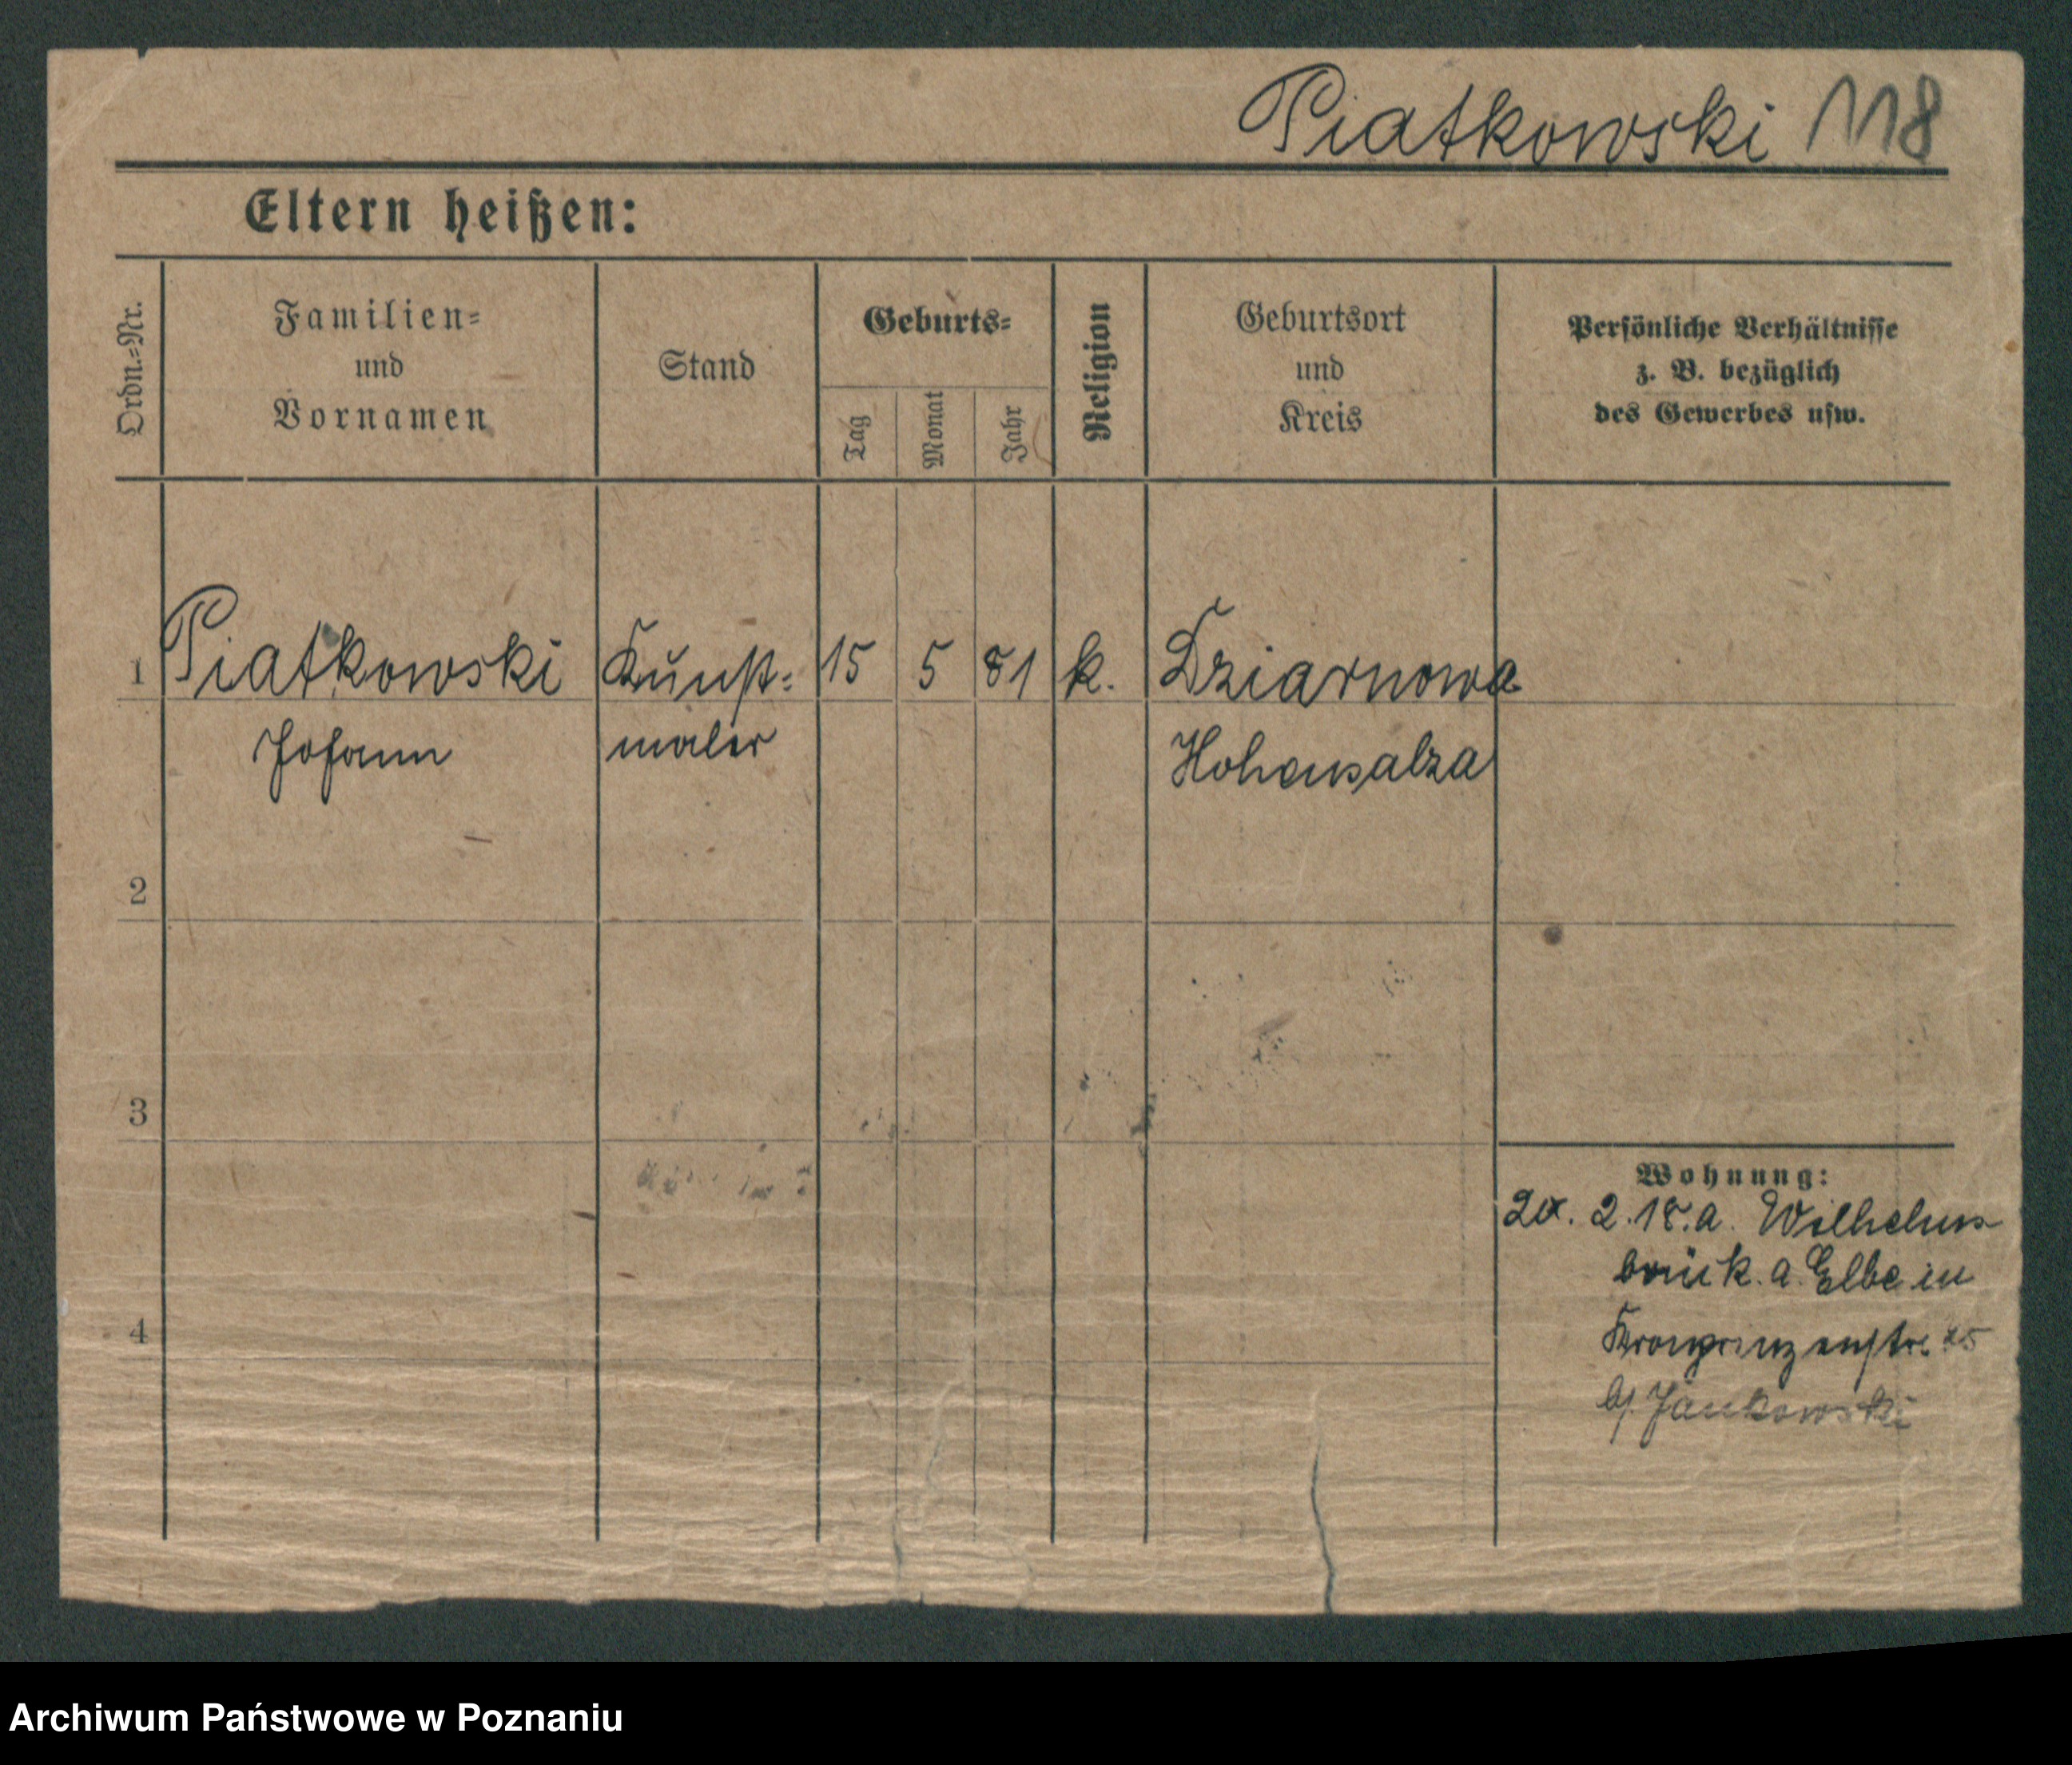 Piatkowski 118
Eltern heißen:
Ordn.=Nr.
Familien=
und
Vornamen
Stand
Geburts=
Tag
Monat
Jahr
Religion
Geburtsort
und
Kreis
Persönliche Verhältnisse
z. B. bezüglich
des Gewerbes usw.
1 Piatkowski Kunst= 15 5 81 k. Dziarnowa
Johann maler Hohensalza
2
3
4
Wohnung:
2.18.a. Wilhelms
brück. a. Elbe in
Kronprinzenstr.
b/. Jankowski
Archiwum Państwowe w Poznaniu